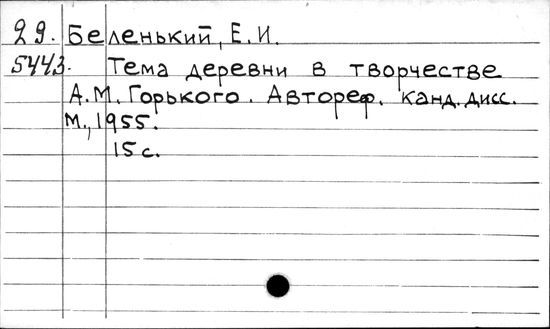 29. Беленький, Е.И.
5443. Тема деревни в творчестве
А.М. Горького. Автореф. канд. дисс.
М., 1955.
15 с.